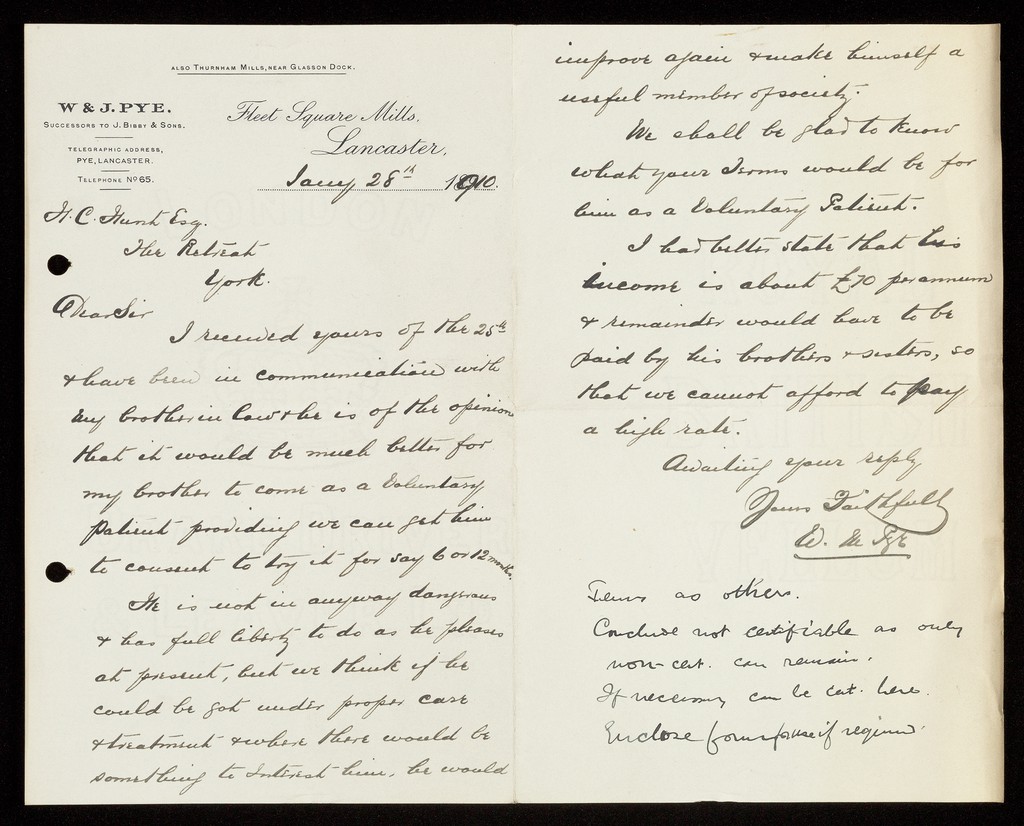 ALSO THURNHAM MILLS, NEAR GLASSON DOCK.
W & J. PYE.
SUCCESSORS TO J. BIBBY & SONS.
TELEGRAPHIC ADDRESS,
PYE, LANCASTER.
TELEPHONE No 65.
Fleet Square Mills,
Lancaster,
Jany 28th 1910.
H. C. Hunt Esq.
The Retreat
York.
Dear Sir
I received yours of the 25th
& have been in communication with
my brother in law & he is of the opinion
that it would be much better for
my brother to come as a Voluntary
Patient providing we can get him
to consent to try it for say 6 or 12 months.
He is not in anyway dangerous
& has full liberty to do as he pleases
at present, but we think if he
could be got under proper care
& treatment & where there would be
something to Interest him, he would
improve again & make himself a
useful member of society.
We shall be glad to know
what your Terms would be for
him as a Voluntary Patient.
I had better state that his
income is about £70 per annum
& remainder would have to be
paid by his brothers & sisters, so
that we cannot afford to pay
a high rate.
Awaiting your reply
Yours Faithfully
W. Pye
Terms as others.
Conclude not certifiable as only
non-cert. can remain.
If necessary can be cert. here.
Enclose forms for use if required.